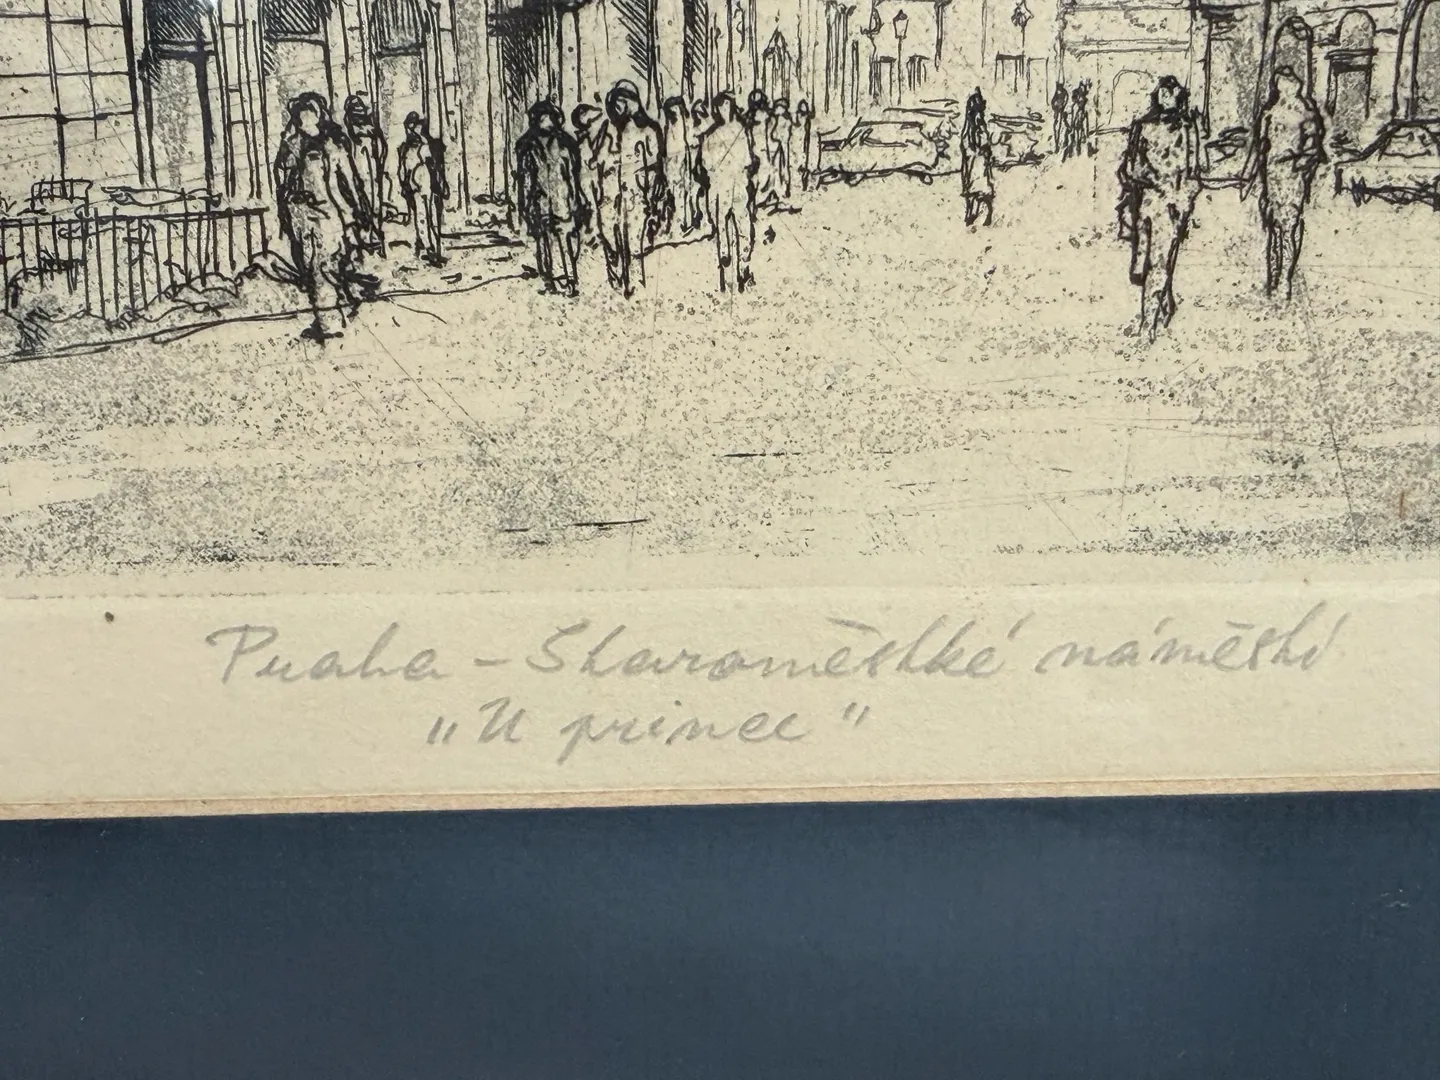 Praha - Staroměstské náměstí
"U prince"